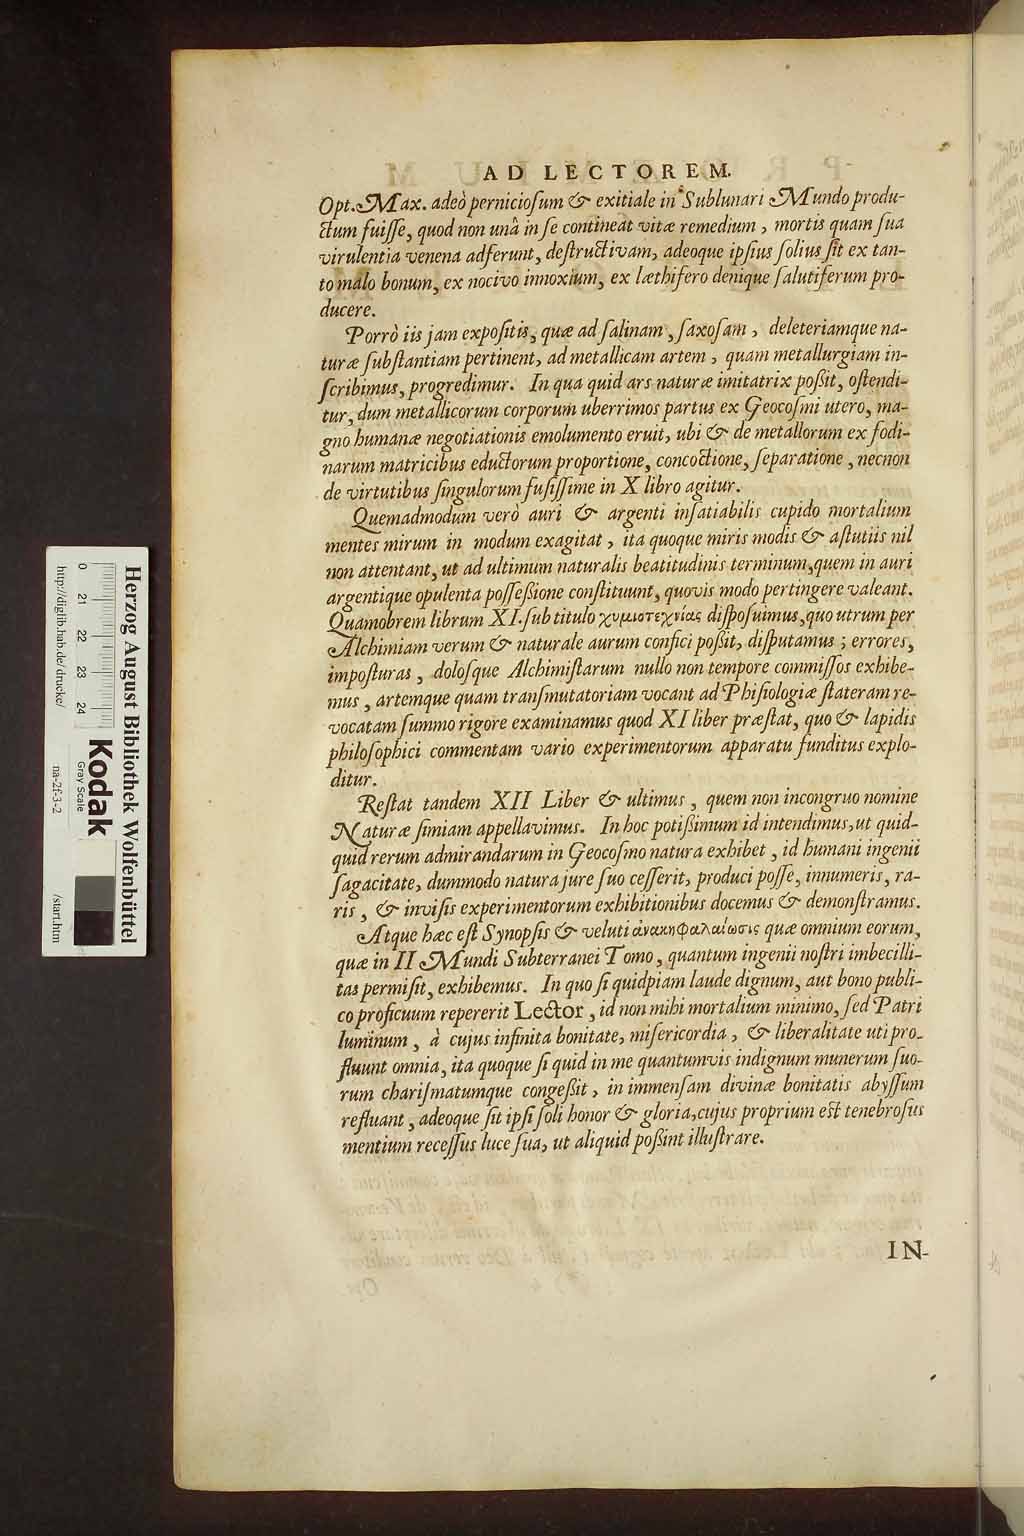 AD LECTOREM.
Opt. Max. adeò pernicioſum & exitiale in Sublunari Mundo produ-
ctum fuiſſe, quod non unâ in ſe contineat vitæ remedium, mortis quam ſua
virulentia venena adferunt, deſtructivam, adeoque ipſius ſolius ſit ex tan-
to malo bonum, ex nocivo innoxium, ex læthifero denique ſalutiferum pro-
ducere.
Porrò iis jam expoſitis, quæ ad ſalinam, ſaxoſam, deleteriamque na-
turæ ſubſtantiam pertinent, ad metallicam artem, quam metallurgiam in-
ſcribimus, progredimur. In qua quid ars naturæ imitatrix poßit, oſtendi-
tur, dum metallicorum corporum uberrimos partus ex Geocoſmi utero, ma-
gno humanæ negotiationis emolumento eruit, ubi & de metallorum ex fodi-
narum matricibus eductorum proportione, concoctione, ſeparatione, necnon
de virtutibus ſingulorum fuſiſſime in X libro agitur.
Quemadmodum verò auri & argenti inſatiabilis cupido mortalium
mentes mirum in modum exagitat, ita quoque miris modis & aſtutiis nil
non attentant, ut ad ultimum naturalis beatitudinis terminum, quem in auri
argentique opulenta poſſeßione conſtituunt, quovis modo pertingere valeant.
Quamobrem librum XI. ſub titulo χυμιοτεχνίας diſpoſuimus, quo utrum per
Alchimiam verum & naturale aurum confici poßit, diſputamus; errores,
impoſturas, doloſque Alchimiſtarum nullo non tempore commiſſos exhibe-
mus, artemque quam tranſmutatoriam vocant ad Phiſiologiæ ſtateram re-
vocatam ſummo rigore examinamus quod XI liber præſtat, quo & lapidis
philoſophici commentam vario experimentorum apparatu funditus explo-
ditur.
Reſtat tandem XII Liber & ultimus, quem non incongruo nomine
Naturæ ſimiam appellavimus. In hoc potißimum id intendimus, ut quid-
quid rerum admirandarum in Geocoſmo natura exhibet, id humani ingenii
ſagacitate, dummodo natura jure ſuo ceſſerit, produci poſſe, innumeris, ra-
ris, & inviſis experimentorum exhibitionibus docemus & demonſtramus.
Atque hæc eſt Synopſis & veluti ἀνακηφαλαίωσις quæ omnium eorum,
quæ in II Mundi Subterranei Tomo, quantum ingenii noſtri imbecilli-
tas permiſit, exhibemus. In quo ſi quidpiam laude dignum, aut bono publi-
co proficuum repererit Lector, id non mihi mortalium minimo, ſed Patri
luminum, à cujus infinita bonitate, miſericordia, & liberalitate uti pro-
fluunt omnia, ita quoque ſi quid in me quantumvis indignum munerum ſuo-
rum chariſmatumque congeßit, in immenſam divinæ bonitatis abyſſum
refluant, adeoque ſit ipſi ſoli honor & gloria, cujus proprium eſt tenebroſus
mentium receſſus luce ſua, ut aliquid poßint illuſtrare.
IN-
Herzog August Bibliothek Wolfenbüttel
0 21 22 23 24
Kodak
Gray Scale
http://diglib.hab.de/drucke/
na-2f-3-2
/start.htm